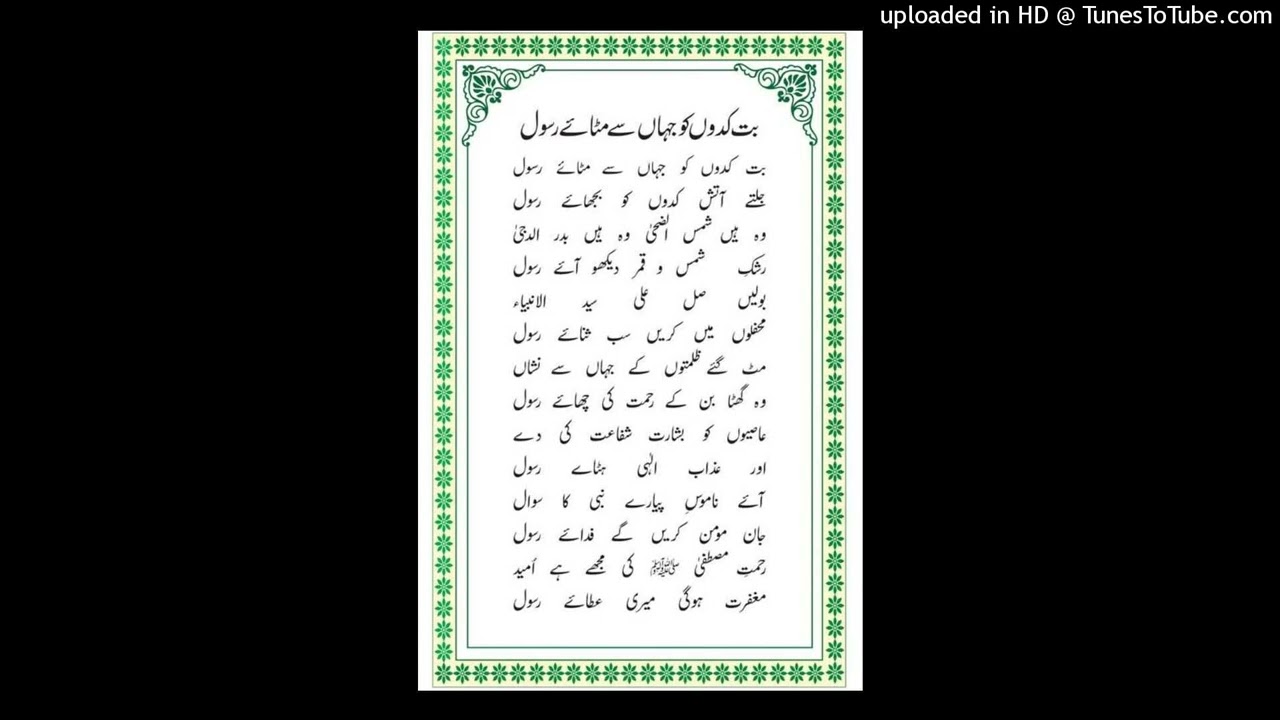 uploaded in HD @ TunesToTube.com
بت کدوں کو جہاں سے مٹائے رسول
بت کدوں کو جہاں سے مٹائے رسول
جلتے آتش کدوں کو بجھائے رسول
وہ ہیں شمس الضحیٰ وہ ہیں بدر الدجیٰ
رشکِ شمس و قمر دیکھو آئے رسول
بولیں صل علی سید الانبیاء
محفلوں میں کریں سب ثنائے رسول
مٹ گئے ظلمتوں کے جہاں سے نشاں
وہ گھٹا بن کے رحمت کی چھائے رسول
عاصیوں کو بشارت شفاعت کی دے
اور عذاب الٰہی ہٹاے رسول
آئے ناموسِ پیارے نبی کا سوال
جان مومن کریں گے فدائے رسول
رحمتِ مصطفیٰ ﷺ کی مجھے ہے اُمید
مغفرت ہوگی میری عطائے رسول